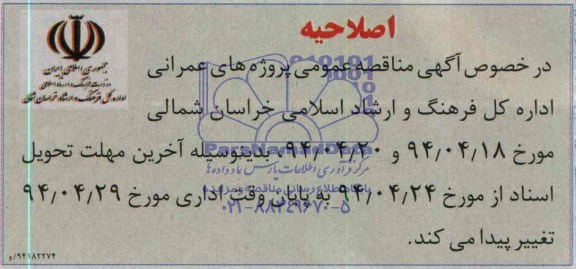 اصلاحیه
جمهوری اسلامی ایران
وزارت فرهنگ و ارشاد اسلامی
اداره کل فرهنگ و ارشاد اسلامی خراسان شمالی
در خصوص آگهی مناقصه عمومی پروژه های عمرانی
اداره کل فرهنگ و ارشاد اسلامی خراسان شمالی
مورخ ۹۴٫۰۴٫۱۸ و ۹۴٫۰۴٫۲۰ بدینوسیله آخرین مهلت تحویل
اسناد از مورخ ۹۴٫۰۴٫۲۴ به پایان وقت اداری مورخ ۹۴٫۰۴٫۲۹
تغییر پیدا می کند.
۹۴۱۸۲۲۷۴/و
ParsNamadData
مرکز فرآوری اطلاعات پارس نماد داده ها
پایگاه اطلاع رسانی مناقصه و مزایده
۰۲۱-۸۸۳۴۹۶۷۰-۵